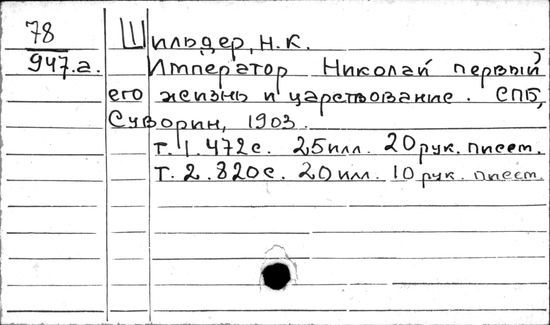 78
947.а.
Шильдер, Н.К.
Император Николай первый,
его жизнь и царствование. СПБ,
Суворин, 1903.
т. 1. 472с. 25илл. 20рук. писем.
т. 2. 820с. 20илл. 10рук. писем.